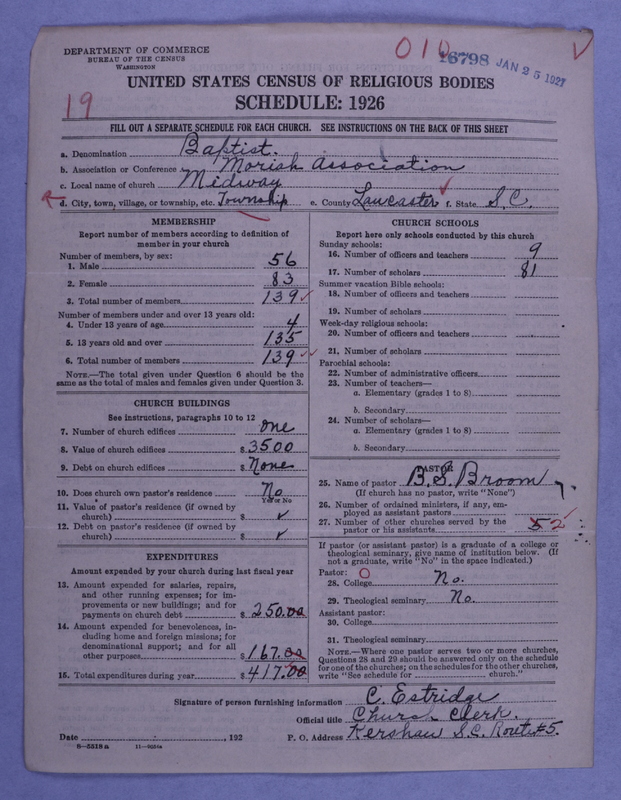 DEPARTMENT OF COMMERCE
BUREAU OF THE CENSUS
WASHINGTON
010
16798
JAN 25 1927
19
UNITED STATES CENSUS OF RELIGIOUS BODIES
SCHEDULE: 1926
FILL OUT A SEPARATE SCHEDULE FOR EACH CHURCH. SEE INSTRUCTIONS ON THE BACK OF THIS SHEET
a. Denomination Baptist.
b. Association or Conference Moriah Association
c. Local name of church Midway
d. City, town, village, or township, etc. Township e. County Lancaster f. State S.C.
MEMBERSHIP
Report number of members according to definition of
member in your church
Number of members, by sex:
1. Male 56
2. Female 83
3. Total number of members 139
Number of members under and over 13 years old:
4. Under 13 years of age 4
5. 13 years old and over 135
6. Total number of members 139
NOTE.—The total given under Question 6 should be the
same as the total of males and females given under Question 3.
CHURCH BUILDINGS
See instructions, paragraphs 10 to 12
7. Number of church edifices one
8. Value of church edifices $ 3500
9. Debt on church edifices $ None
10. Does church own pastor's residence No
Yes or No
11. Value of pastor's residence (if owned by
church) $ ✓
12. Debt on pastor's residence (if owned by
church) $ ✓
EXPENDITURES
Amount expended by your church during last fiscal year
13. Amount expended for salaries, repairs,
and other running expenses; for im-
provements or new buildings; and for
payments on church debt $ 250.00
14. Amount expended for benevolences, in-
cluding home and foreign missions; for
denominational support; and for all
other purposes $ 167.00
15. Total expenditures during year $ 417.00
CHURCH SCHOOLS
Report here only schools conducted by this church
Sunday schools:
16. Number of officers and teachers 9
17. Number of scholars 81
Summer vacation Bible schools:
18. Number of officers and teachers
19. Number of scholars
Week-day religious schools:
20. Number of officers and teachers
21. Number of scholars
Parochial schools:
22. Number of administrative officers
23. Number of teachers—
a. Elementary (grades 1 to 8)
b. Secondary
24. Number of scholars—
a. Elementary (grades 1 to 8)
b. Secondary
PASTOR
25. Name of pastor B. S. Broom
(If church has no pastor, write "None")
26. Number of ordained ministers, if any, em-
ployed as assistant pastors
27. Number of other churches served by the
pastor or his assistants 5 2
If pastor (or assistant pastor) is a graduate of a college or
theological seminary, give name of institution below. (If
not a graduate, write "No" in the space indicated.)
Pastor: O
28. College No.
29. Theological seminary No.
Assistant pastor:
30. College
31. Theological seminary
NOTE.—Where one pastor serves two or more churches,
Questions 28 and 29 should be answered only on the schedule
for one of the churches; on the schedules for the other churches,
write "See schedule for church."
Signature of person furnishing information C. Estridge
Official title Church Clerk.
Date , 192 P. O. Address Kershaw S.C. Route #5.
8—5518 a